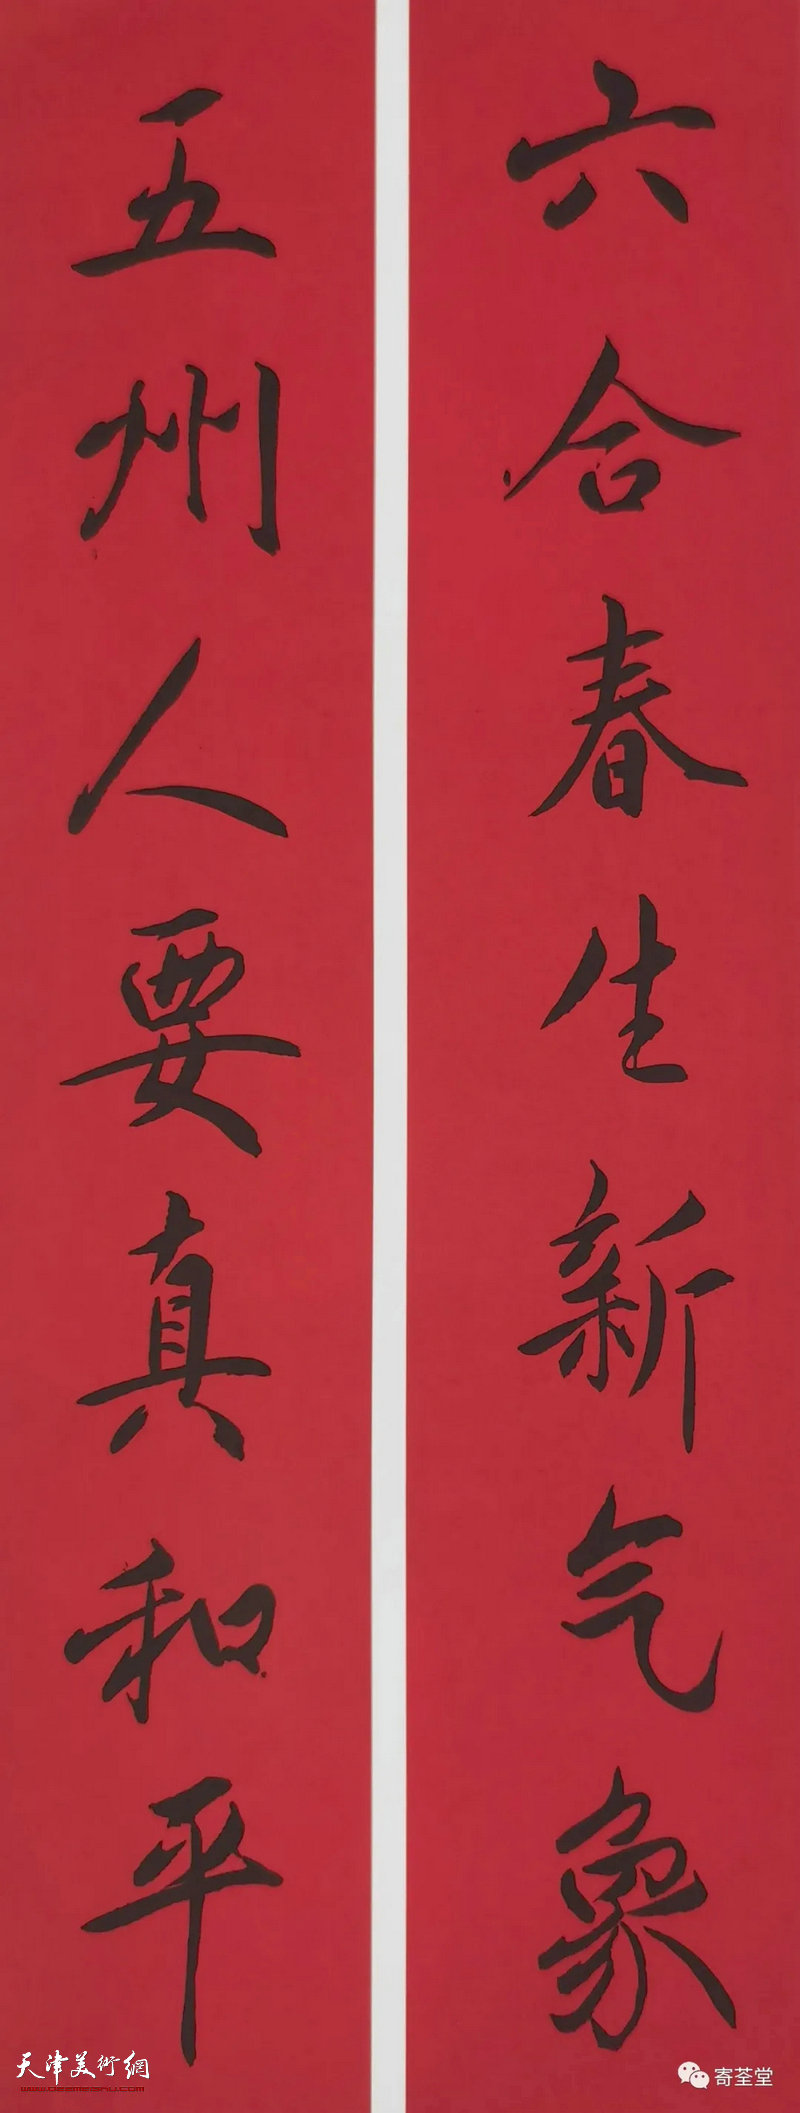 六合春生新气象
五州人要真和平
天津美術網
www.022meishu.com
寄荃堂